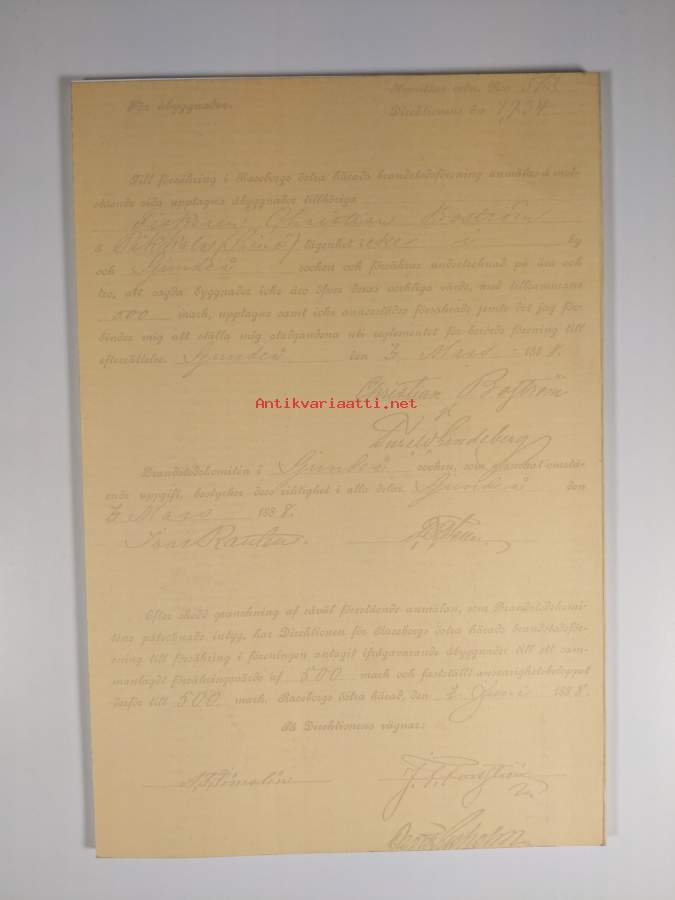 För åbyggnader.
Komiténs ordn. N:o 583
Direktionens d:o 1734
Till försäkring i Raseborgs östra härads brandstodsförening anmälas å mot-
stående sida upptagna åbyggnader tillhöriga
Christian Boström
å lägenhet i by
och Sjundeå socken och försäkras undertecknad på ära och
tro, att sagda byggnader icke äro öfver deras verkliga värde, med tillsammans
500 mark, upptagne samt icke annorstädes försäkrade jemte det jag för-
binder mig att ställa mig stadgandena uti reglementet för berörde förening till
efterrättelse. Sjundeå den 3 Mars 1888.
Christian Boström
Antikvariaatti.net
Lindeberg
Brandstodskomitén i Sjundeå socken, som granskat omstå-
ende uppgift, bestyrker dess riktighet i alla delar. Sjundeå den
Mars 1888.
Efter skedd granskning af såväl förestående anmälan, som Brandstodskomi-
téns påtecknade intyg, har Direktionen för Raseborgs östra härads brandstodsför-
ening till försäkring i föreningen antagit ifrågavarande åbyggnader till ett sam-
manlagdt försäkringsvärde af 500 mark och fastställt ansvarighetsbeloppet
derför till 500 mark. Raseborgs östra härad, den 2 Juni 1888.
På Direktionens vägnar: